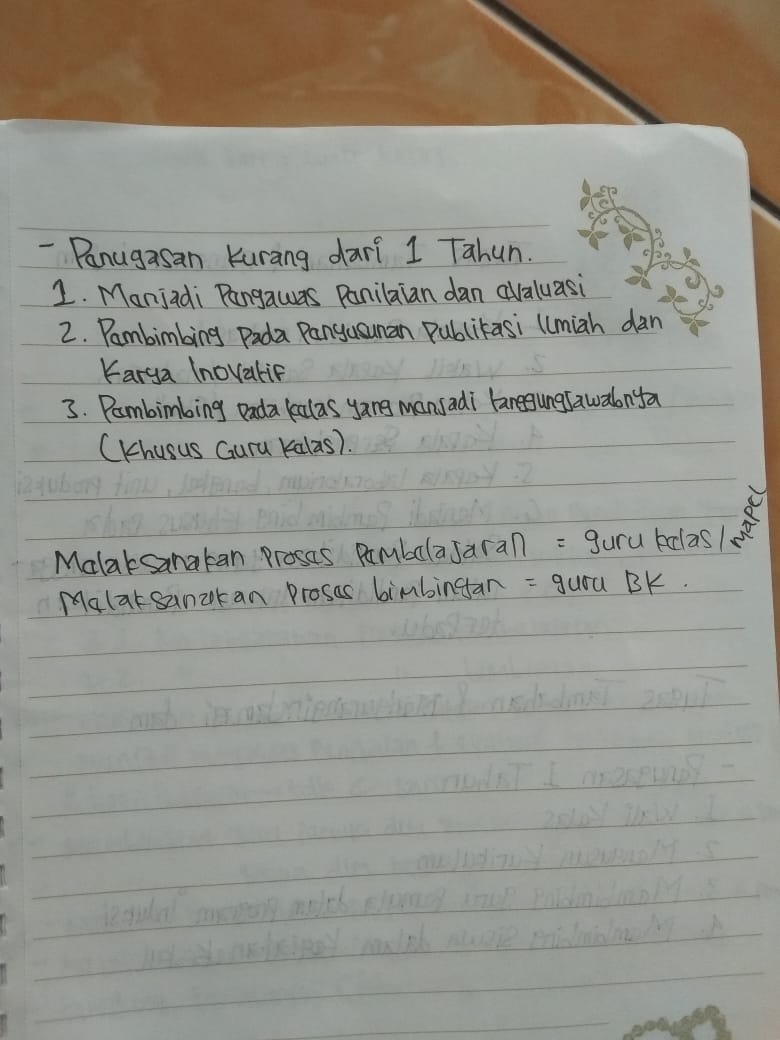 - Penugasan kurang dari 1 Tahun.
1. Menjadi Pengawas Penilaian dan evaluasi
2. Pembimbing pada Penyusunan Publikasi Ilmiah dan
Karya Inovatif
3. Pembimbing pada kelas yang menjadi tanggungjawabnya
(Khusus Guru Kelas).
Melaksanakan Proses Pembelajaran = guru kelas / mapel
Melaksanakan Proses bimbingan = guru BK.